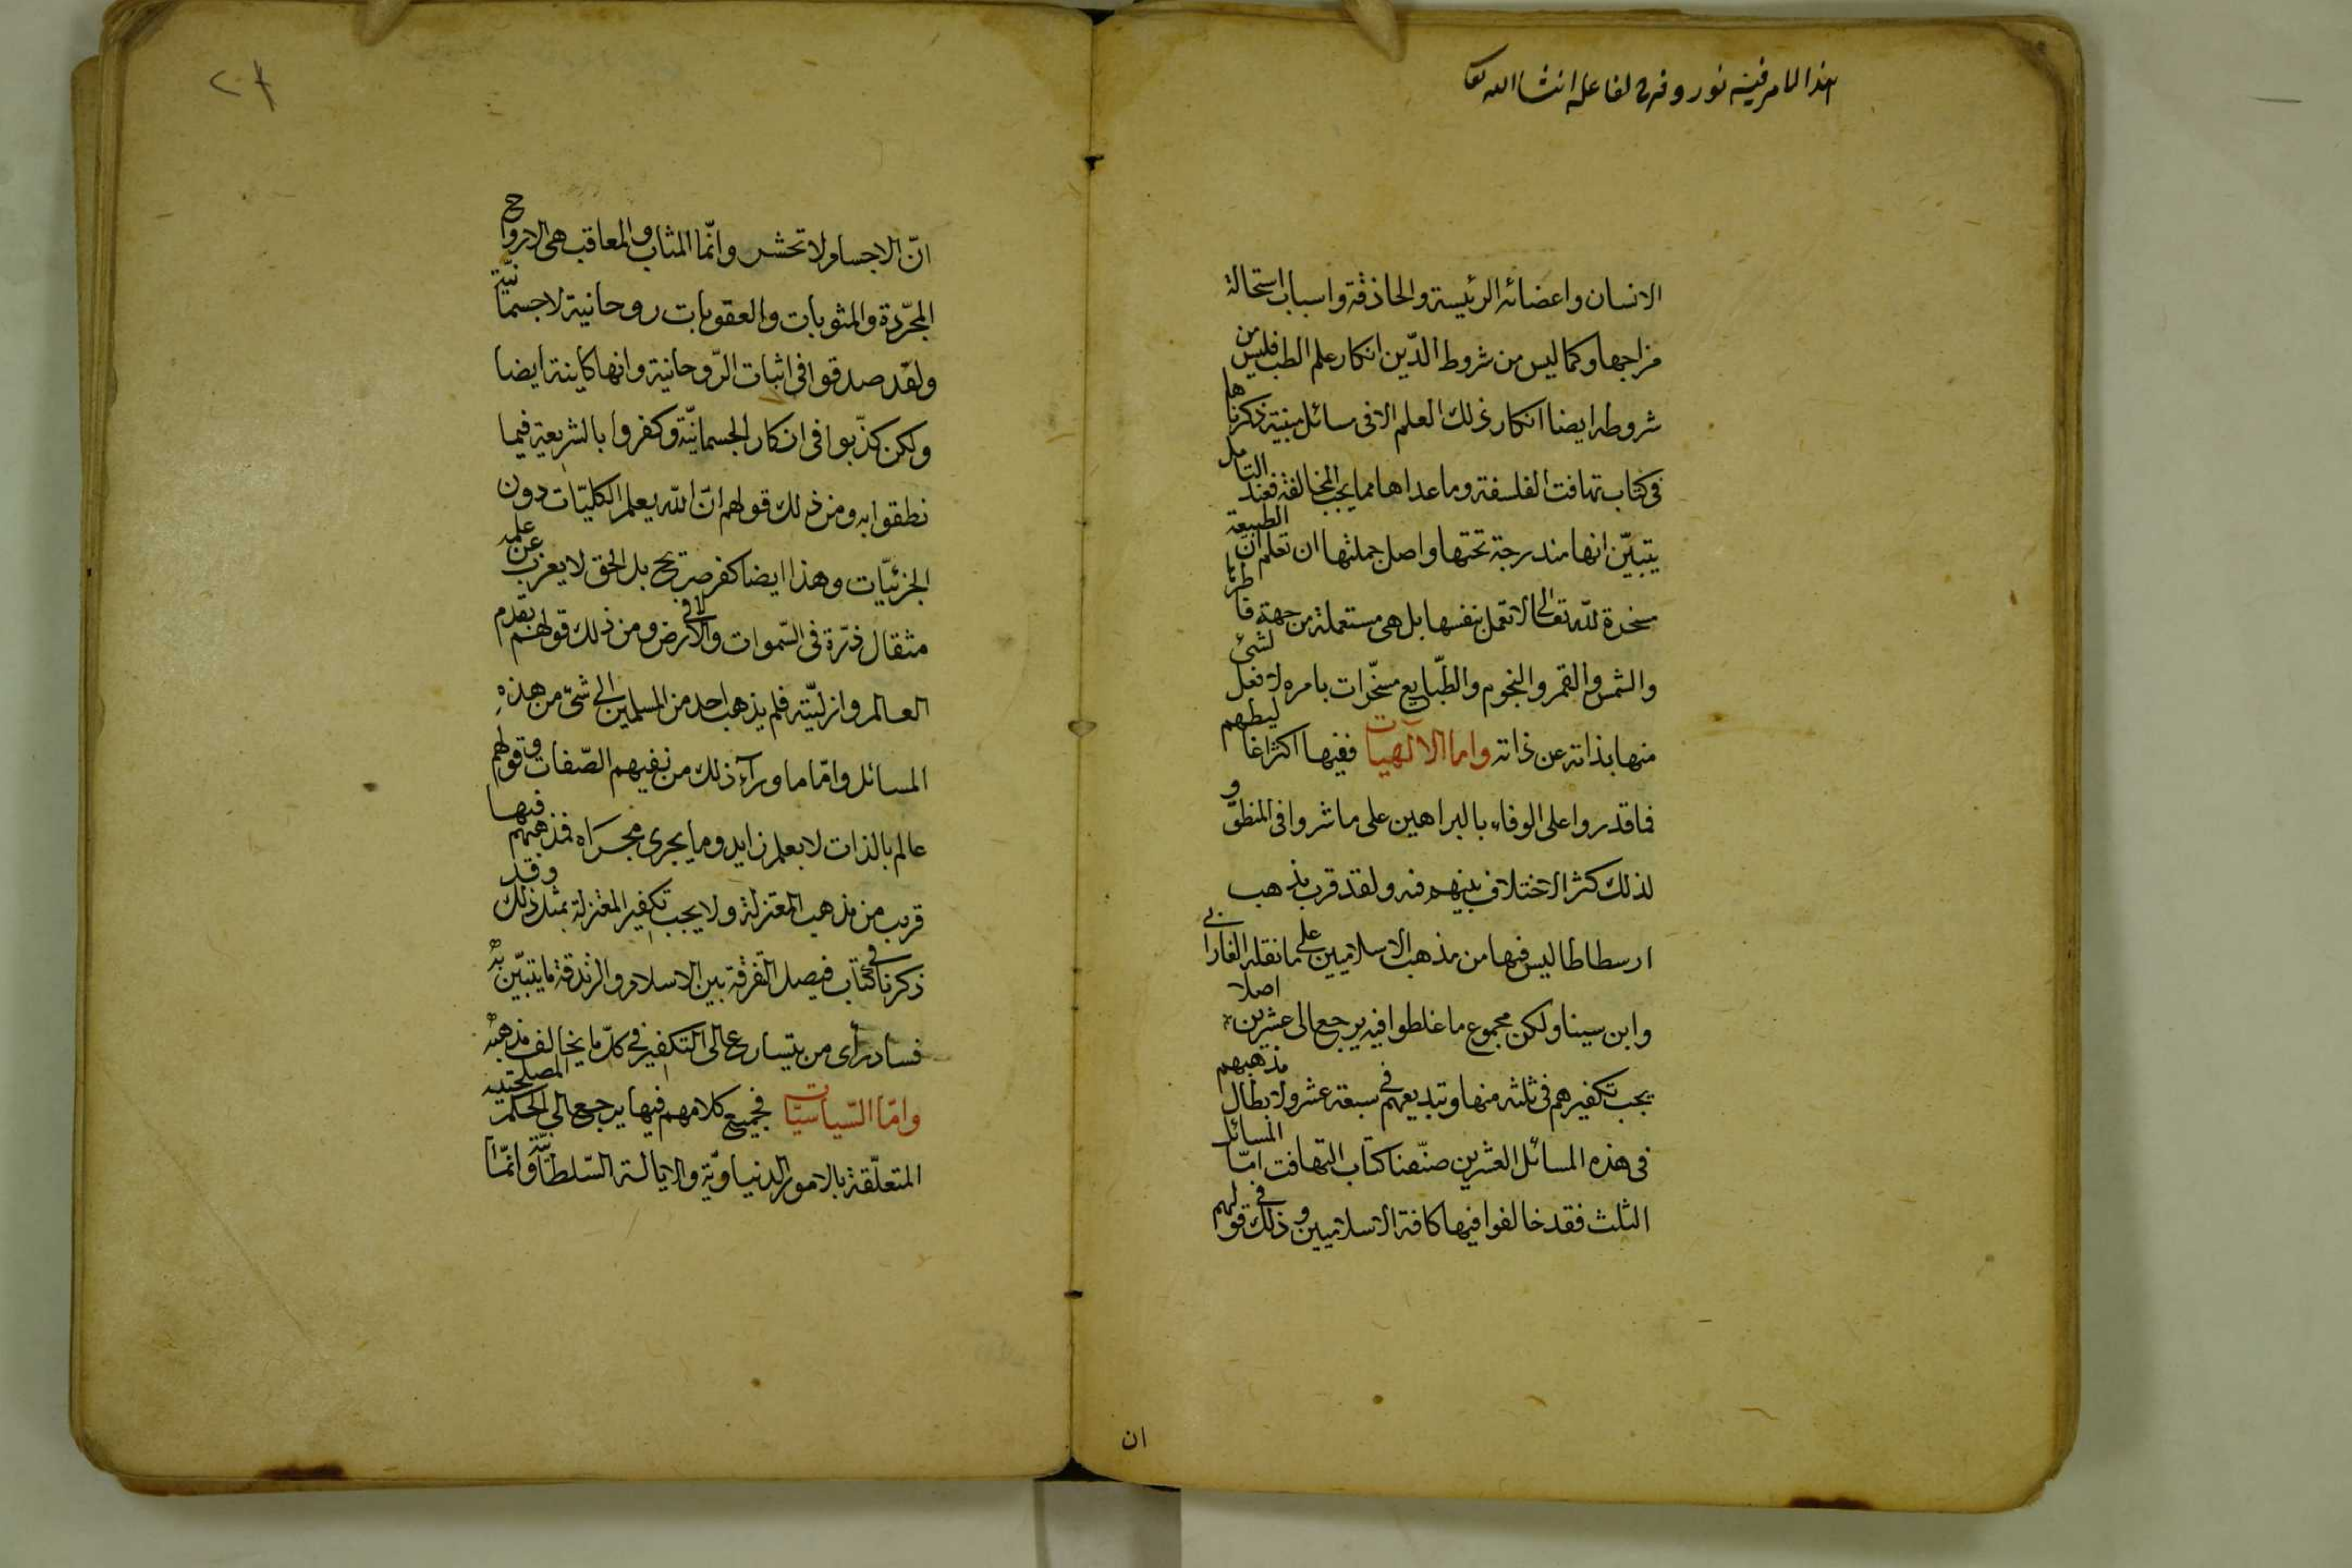 هذا الامر فيه نور و فرح لفاعله انشا الله تعا
الانسان واعضائه الرئيسة والحاذقة واسباب استحالة
مزاجها وكما ليس من شروط الدّين انكار علم الطب فليس من
شروطه ايضا انكار ذلك العلم الا فى مسائل مبنية ذكرناها
فى كتاب تهافت الفلسفة وما عداها مما يجب المخالفة فعند التامل
يتبيّن انها مندرجة تحتها واصل جملتها ان تعلم انّ الطبيعة
مسخرة لله تعالى لا تعمل بنفسها بل هى مستعملة من جهة فاطرها
والشمس والقمر والنجوم والطّبايع مسخّرات بامره لا فعل لشئ
منها بذاته عن ذاته واما الآلهيات ففيها اكثر اغاليطهم
فما قدروا على الوفاء بالبراهين على ما شروا فى المنطق و
لذلك كثر الاختلاف بينهم فيه ولقد قرب مذهب
ارسطاطاليس فيها من مذهب الاسلاميين على ما نقله الفارابى
وابن سينا ولكن مجموع ما غلطوا فيه يرجع الى عشرين اصلا
يجب تكفيرهم فى ثلثه منها وتبديعهم فى سبعة عشر ولابطال مذهبهم
فى هذه المسائل العشرين صنّفنا كتاب التهافت امّا المسائل
الثلث فقد خالفوا فيها كافة الاسلاميين و ذلك فى قولهم
ان
٢٠٨
انّ الاجسام لا تحشر وانّما المثاب والمعاقب هى الارواح
المجرّدة والمثوبات والعقوبات روحانية لا جسمانيّة
ولقد صدقوا فى اثبات الرّوحانية وانها كاينة ايضا
ولكن كذّبوا فى انكار الجسمانيّة وكفروا بالشريعة فيما
نطقوا به ومن ذلك قولهم انّ الله يعلم الكليّات دون
الجزئيّات وهذا ايضا كفر صريح بل الحق لا يعزب عن علمه
مثقال ذرّة فى السّموات ولا فى الارض ومن ذلك قولهم بقدم
العالم وازليّته فلم يذهب احد من المسلمين الى شئ من هذه
المسائل وامّا ما ورآء ذلك من نفيهم الصّفات وقولهم
عالم بالذات لا بعلم زايد وما يجرى مجراه فمذهبهم فيها
قريب من مذهب المعتزلة ولا يجب تكفير المعتزلة بمثل ذلك وقد
ذكرنا فى كتاب فيصل التفرقة بين الاسلام والزندقة ما يتبيّن به
فساد رأى من يتسارع الى التكفير فى كلّ ما يخالف مذهبه
وامّا السّياسيّات فجميع كلامهم فيها يرجع الى الحكم المصلحتيه
المتعلّقة بالامور الدنياويّة والايالة السّلطانيّة وانمّا